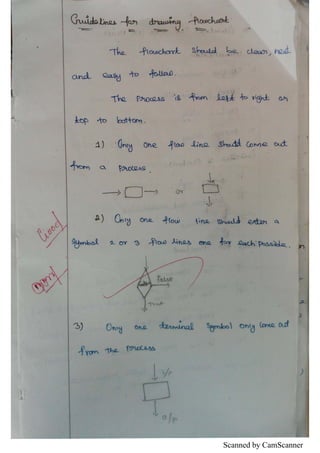 Guidelines for drawing flowchart
The flowchart should be clear, neat
and easy to follow.
The process is from left to right or
top to bottom.
1) Only one flow line should come out
from a process.
or
2) Only one flow line should enter a
Symbol 2 or 3 flow lines one for each possible.
Good
False
True
3) Only one terminal symbol only come out
from the process
i/p
o/p
Scanned by CamScanner